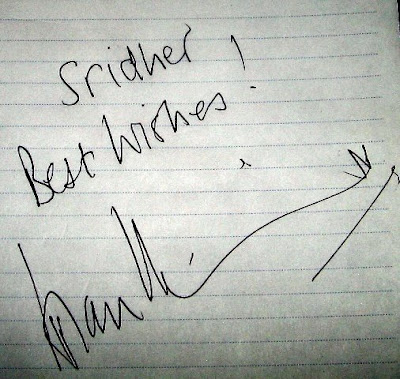 Sridher
Best Wishes!